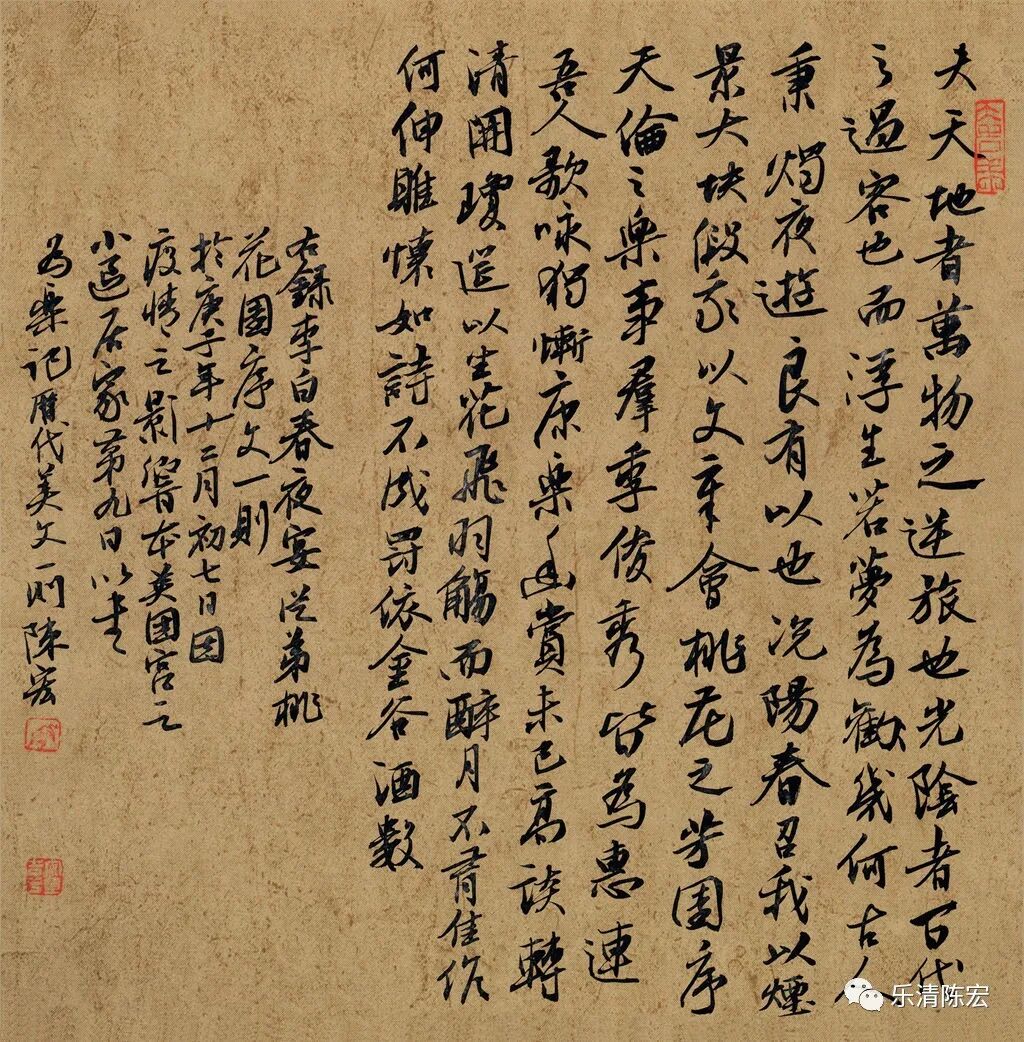 夫天地者萬物之逆旅也光陰者百代
之過客也而浮生若夢為歡幾何古人
秉燭夜遊良有以也況陽春召我以煙
景大块假我以文章會桃花之芳園序
天倫之樂事羣季俊秀皆為惠連
吾人歌咏獨慚康樂幽賞未已高談轉
清開瓊筵以坐花飛羽觴而醉月不有佳作
何伸雅懷如詩不成罰依金谷酒數
右録李白春夜宴從弟桃
花園序文一則
於庚子年十二月初七日因
疫情之影響在英国宫之
小區居家第九日以書
為樂記歷代美文一则陳宏
乐清陈宏